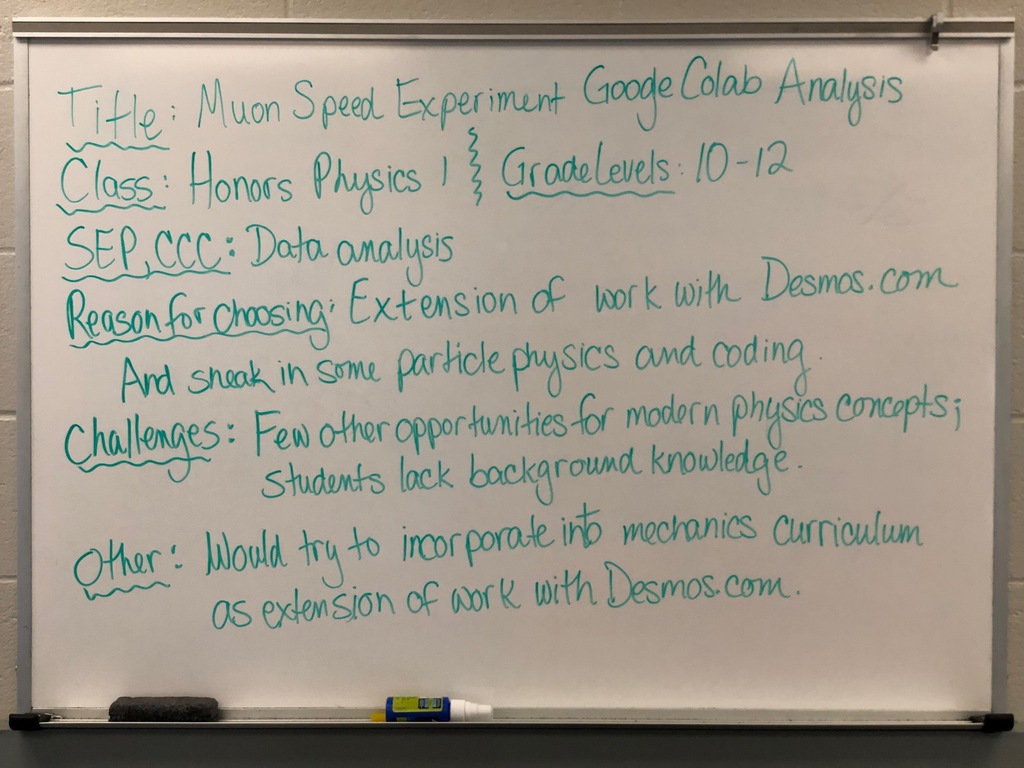 Title: Muon Speed Experiment Google Colab Analysis
Class: Honors Physics 1 Grade Levels: 10-12
SEP, CCC: Data analysis
Reason for choosing: Extension of work with Desmos.com
And sneak in some particle physics and coding.
Challenges: Few other opportunities for modern physics concepts;
students lack background knowledge.
Other: Would try to incorporate into mechanics curriculum
as extension of work with Desmos.com.